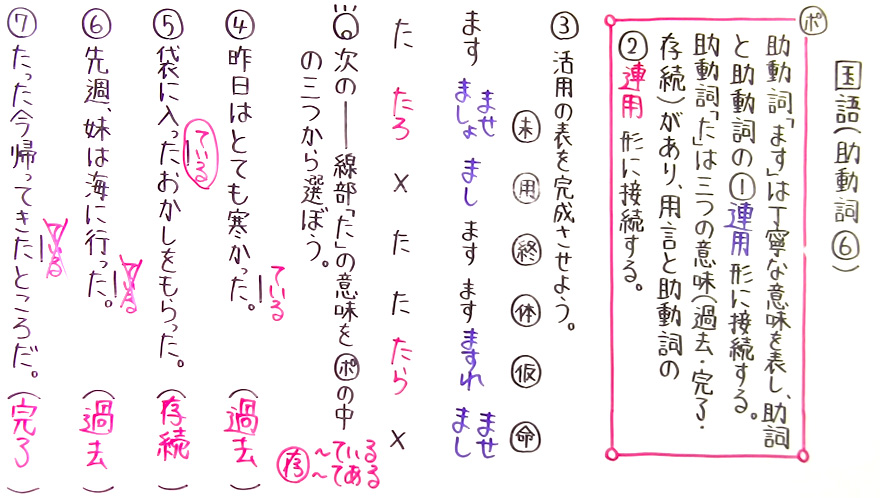 国語(助動詞⑥)
ポ
助動詞「ます」は丁寧な意味を表し、助詞
と助動詞の①連用形に接続する。
助動詞「た」は三つの意味(過去・完了・
存続)があり、用言と助動詞の
②連用形に接続する。
③活用の表を完成させよう。
未 用 終 体 仮 命
ませ ましょ まし ます ます ますれ ませ まし
ます
た たろ × た た たら ×
次の――線部「た」の意味をポの中
の三つから選ぼう。
存 〜ている 〜てある
④昨日はとても寒かった。(過去)
ている
⑤袋に入ったおかしをもらった。(存続)
ている
⑥先週、妹は海に行った。(過去)
ている
⑦たった今帰ってきたところだ。(完了)
ている